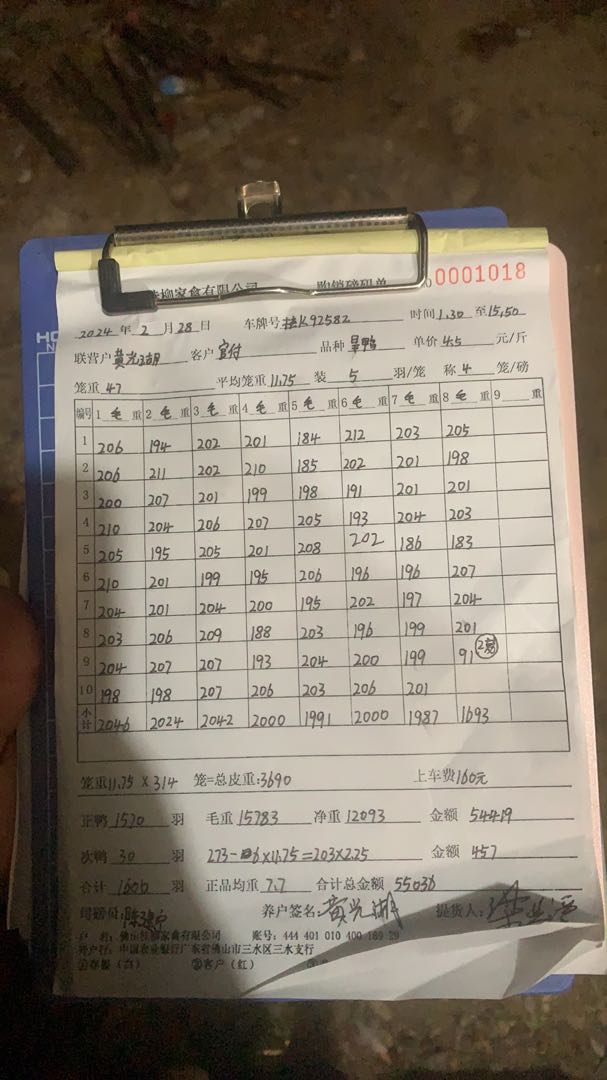 柳家禽有限公司 购销磅码单 0001018
2024年2月28日 车牌号 K92582 时间1.30至15.50
联营户 黄光湖 客户 品种 旱鸭 单价4.5元/斤
笼重47 平均笼重11.75 装5羽/笼 称4笼/磅
编号 1毛重 2毛重 3毛重 4毛重 5毛重 6毛重 7毛重 8毛重 9重
1 206 194 202 201 184 212 203 205
2 206 211 202 210 185 202 201 198
3 200 207 201 199 198 191 201 201
4 210 204 206 207 205 193 204 203
5 205 195 205 201 208 202 186 183
6 210 201 199 195 206 196 196 207
7 204 201 204 200 195 202 197 204
8 203 206 209 188 203 196 199 201
9 204 207 207 193 204 200 199 91 2笼
10 198 198 207 206 203 206 201
小计 2046 2024 2042 2000 1991 2000 1987 1693
笼重11.75×314笼=总皮重:3690 上车费160元
正鸭1570羽 毛重15783 净重12093 金额54419
次鸭30羽 273-6×11.75=203×2.25 金额457
合计1600羽 正品均重7.7 合计总金额55036
司磅员: 养户签名:黄光湖 提货人:
户名:佛山 柳家禽有限公司 账号:444 401 010 400 189 29
开户行:中国农业银行广东省佛山市三水区三水支行
①存根(白) ②客户(红)